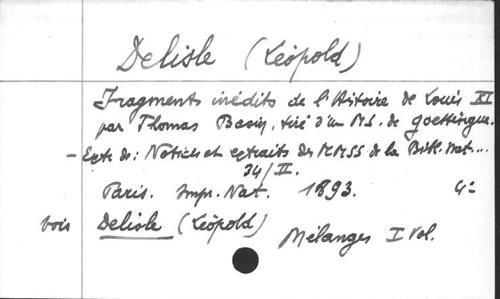 Delisle (Léopold)
Fragments inédits de l'Histoire de Louis XI
par Thomas Basin, tiré d'un M.S. de Goettingue.
- Extr. de: Notices et extraits des MMSS de la Bibl. Nat...
34/II.
Paris. Impr. Nat. 1893. 4°
vois Delisle (Léopold)
Mélanges I vol.